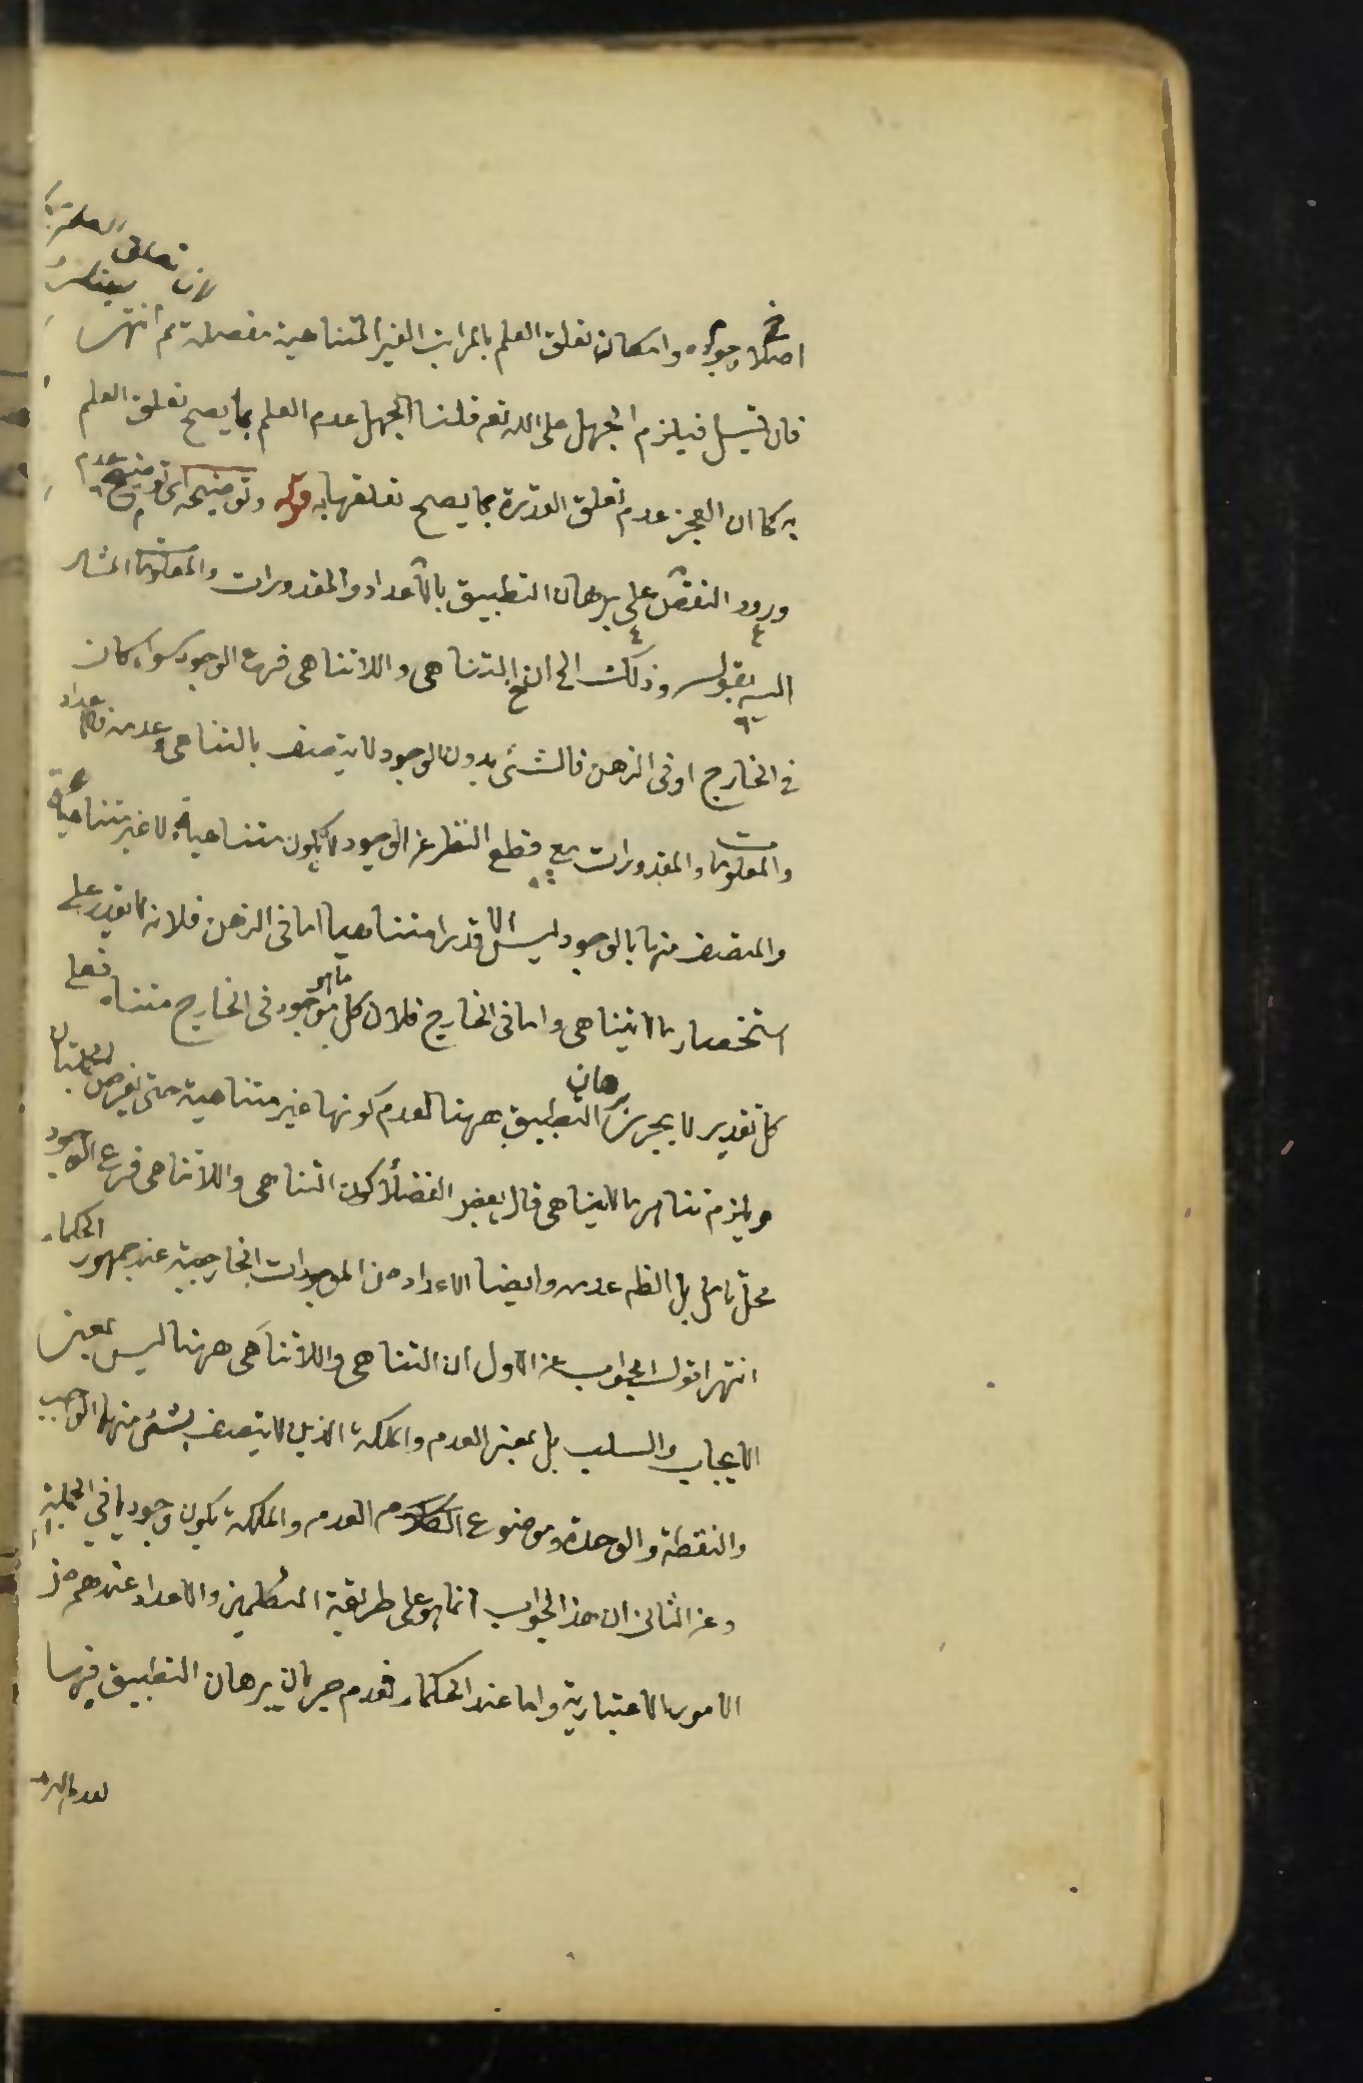 لان تعلق العلم
اصلا وجوده وامكان تعلق العلم بالمراتب الغير المتناهية مفصلة مم انتهى
فان قيل فيلزم الجهل على الله تعم قلنا الجهل عدم العلم بما يصح تعلق العلم
به كما ان العجز عدم تعلق القدرة بما يصح تعلقها به قوله وتوضيحه اى توضيح عدم
ورود النقض على برهان التطبيق بالاعداد والمقدورات والمعلومات المشار
اليه بقوله وذلك الخ ان التناهى واللاتناهى فرع الوجود سواء كان
فى الخارج او فى الذهن فالشئ بدون الوجود لا يتصف بالتناهى وعدمه فالاعداد
والمعلومات والمقدورات مع قطع النظر عن الوجود لا يكون متناهية ولا غير متناهية
والمتصف منها بالوجود ليس الا قدرا متناهيا اما فى الذهن فلانه لا يقدر على
استحضار ما لا يتناهى واما فى الخارج فلان كل ما هو موجود فى الخارج متناه فعلى
كل تقدير لا يجرى برهان التطبيق ههنا لعدم كونها غير متناهية حتى يفرض
ويلزم تناهى ما لا يتناهى قال بعض الفضلأ كون التناهى واللاتناهى فرع الوجود
محل تامل بل الظم عدمه وايضا الاعداد من الموجودات الخارجية عند جمهور الحكماء
انتهى اقول الجواب عن الاول ان التناهى واللاتناهى ههنا ليس بمعنى
الايجاب والسلب بل بمعنى العدم والملكة الذين لا يتصف بشئ منهما الواجب
والنقطة والوحدة وموضوع العدم والملكة يكون وجوديا فى الجملة
وعن الثانى ان هذا الجواب انما هو على طريقة المتكلمين والاعداد عندهم من
الامور الاعتبارية واما عند الحكماء فعدم جريان برهان التطبيق فيها